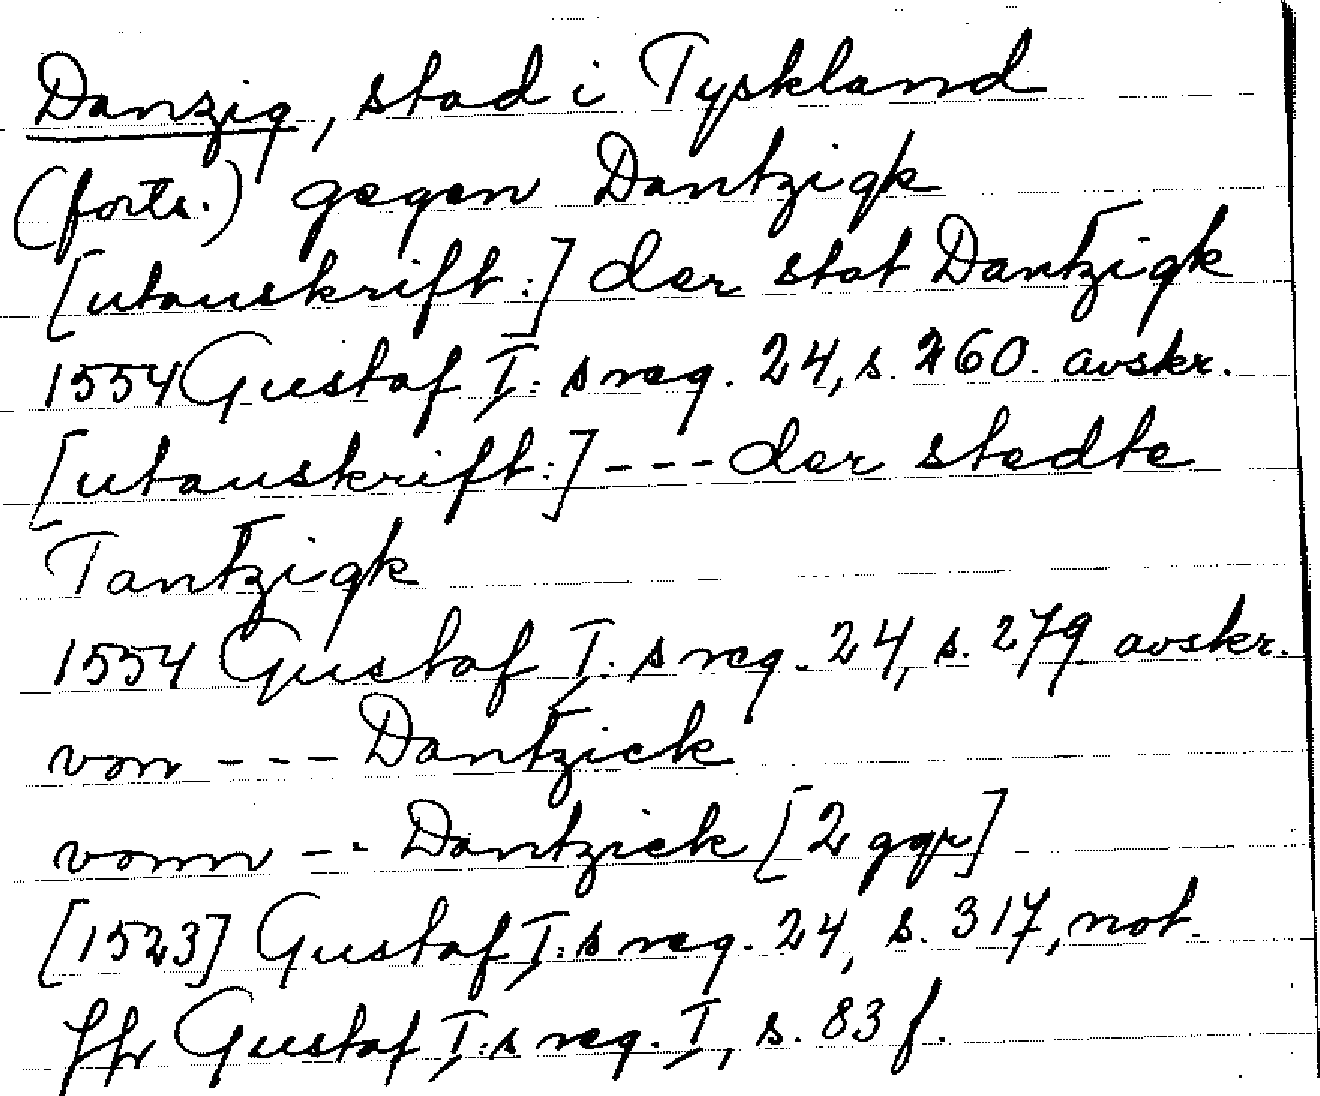 Danzig, stad i Tyskland
(forts.) gegen Dantzigk
[utanskrift:] der stat Dantzigk
1554 Gustaf I:s reg. 24, s. 260. avskr.
[utanskrift:] --- der stedte
Tantzigk
1554 Gustaf I:s reg. 24, s. 279 avskr.
von --- Dantzick
vonn -- Dantzick [2 ggr]
[1523] Gustaf I:s reg. 24, s. 317, not.
Jfr Gustaf I:s reg. I, s. 83 f.